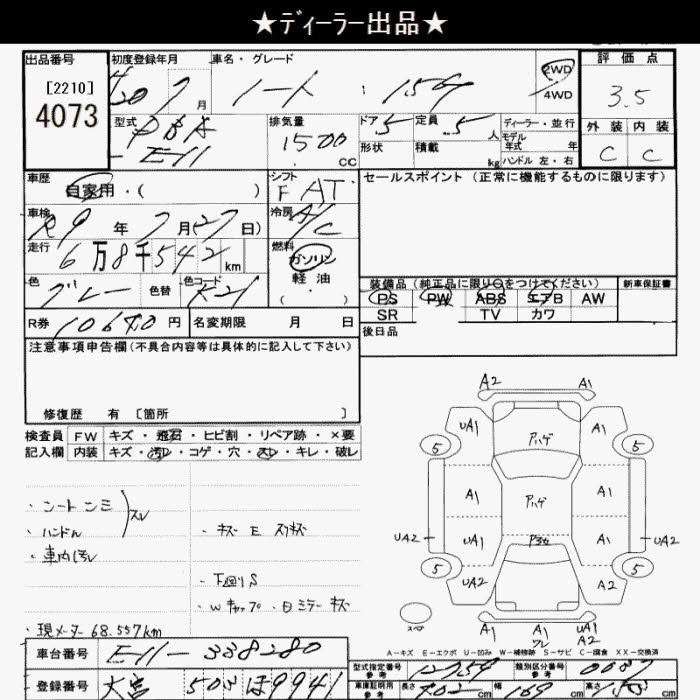 ★ディーラー出品★
出品番号
[2210]
4073
初度登録年月
H20 年 7 月
車名・グレード
ノート : 15G
2WD
4WD
評価点
3.5
外装 内装
C C
型式
DBA
- E11
排気量
1500 cc
ドア 5
形状
定員 5 人
積載 kg
ディーラー・並行
モデル年式 年
ハンドル 左・右
車歴
自家用・( )
シフト
FAT
セールスポイント(正常に機能するものに限ります)
車検
R9 年 7 月(27 日)
冷房
A/C
走行
6万8千542 km
燃料
ガソリン
軽油
( ・ )
色
グレー
色替
色コード
K21
装備品(純正品に限り○をつけてください)
新車保証書
PS PW ABS エアB AW
SR TV カワ
R券 10640 円
名変期限 月 日
後日品
注意事項申告欄(不具合内容等は具体的に記入して下さい)
修復歴 有 [箇所 ]
検査員
記入欄
FW キズ・飛石・ヒビ割・リペア跡・×要
内装 キズ・汚れ・コゲ・穴・スレ・キレ・破レ
・ハンドル
スレ
・車内汚レ
・下回りS
・Wキャップ・Bミラー キズ
・現メーター 68.557km
A2 A1
UA1 アハゲ A1
5 5
A1 アハゲ A1
UA2 UA1 A1 UA2
5 5
UA2 A2
スペア
A1 A1 UA1
ワレ A2
A-キズ E-エクボ U-凹み W-補修跡 S-サビ C-腐食 XX-交換済
車台番号 E11-338280
型式指定番号 参考 12759
類別区分番号 参考 0087
登録番号 大宮 503 ほ 9941
車庫証明用 参考 長さ 402 cm 幅 169 cm 高さ 153 cm